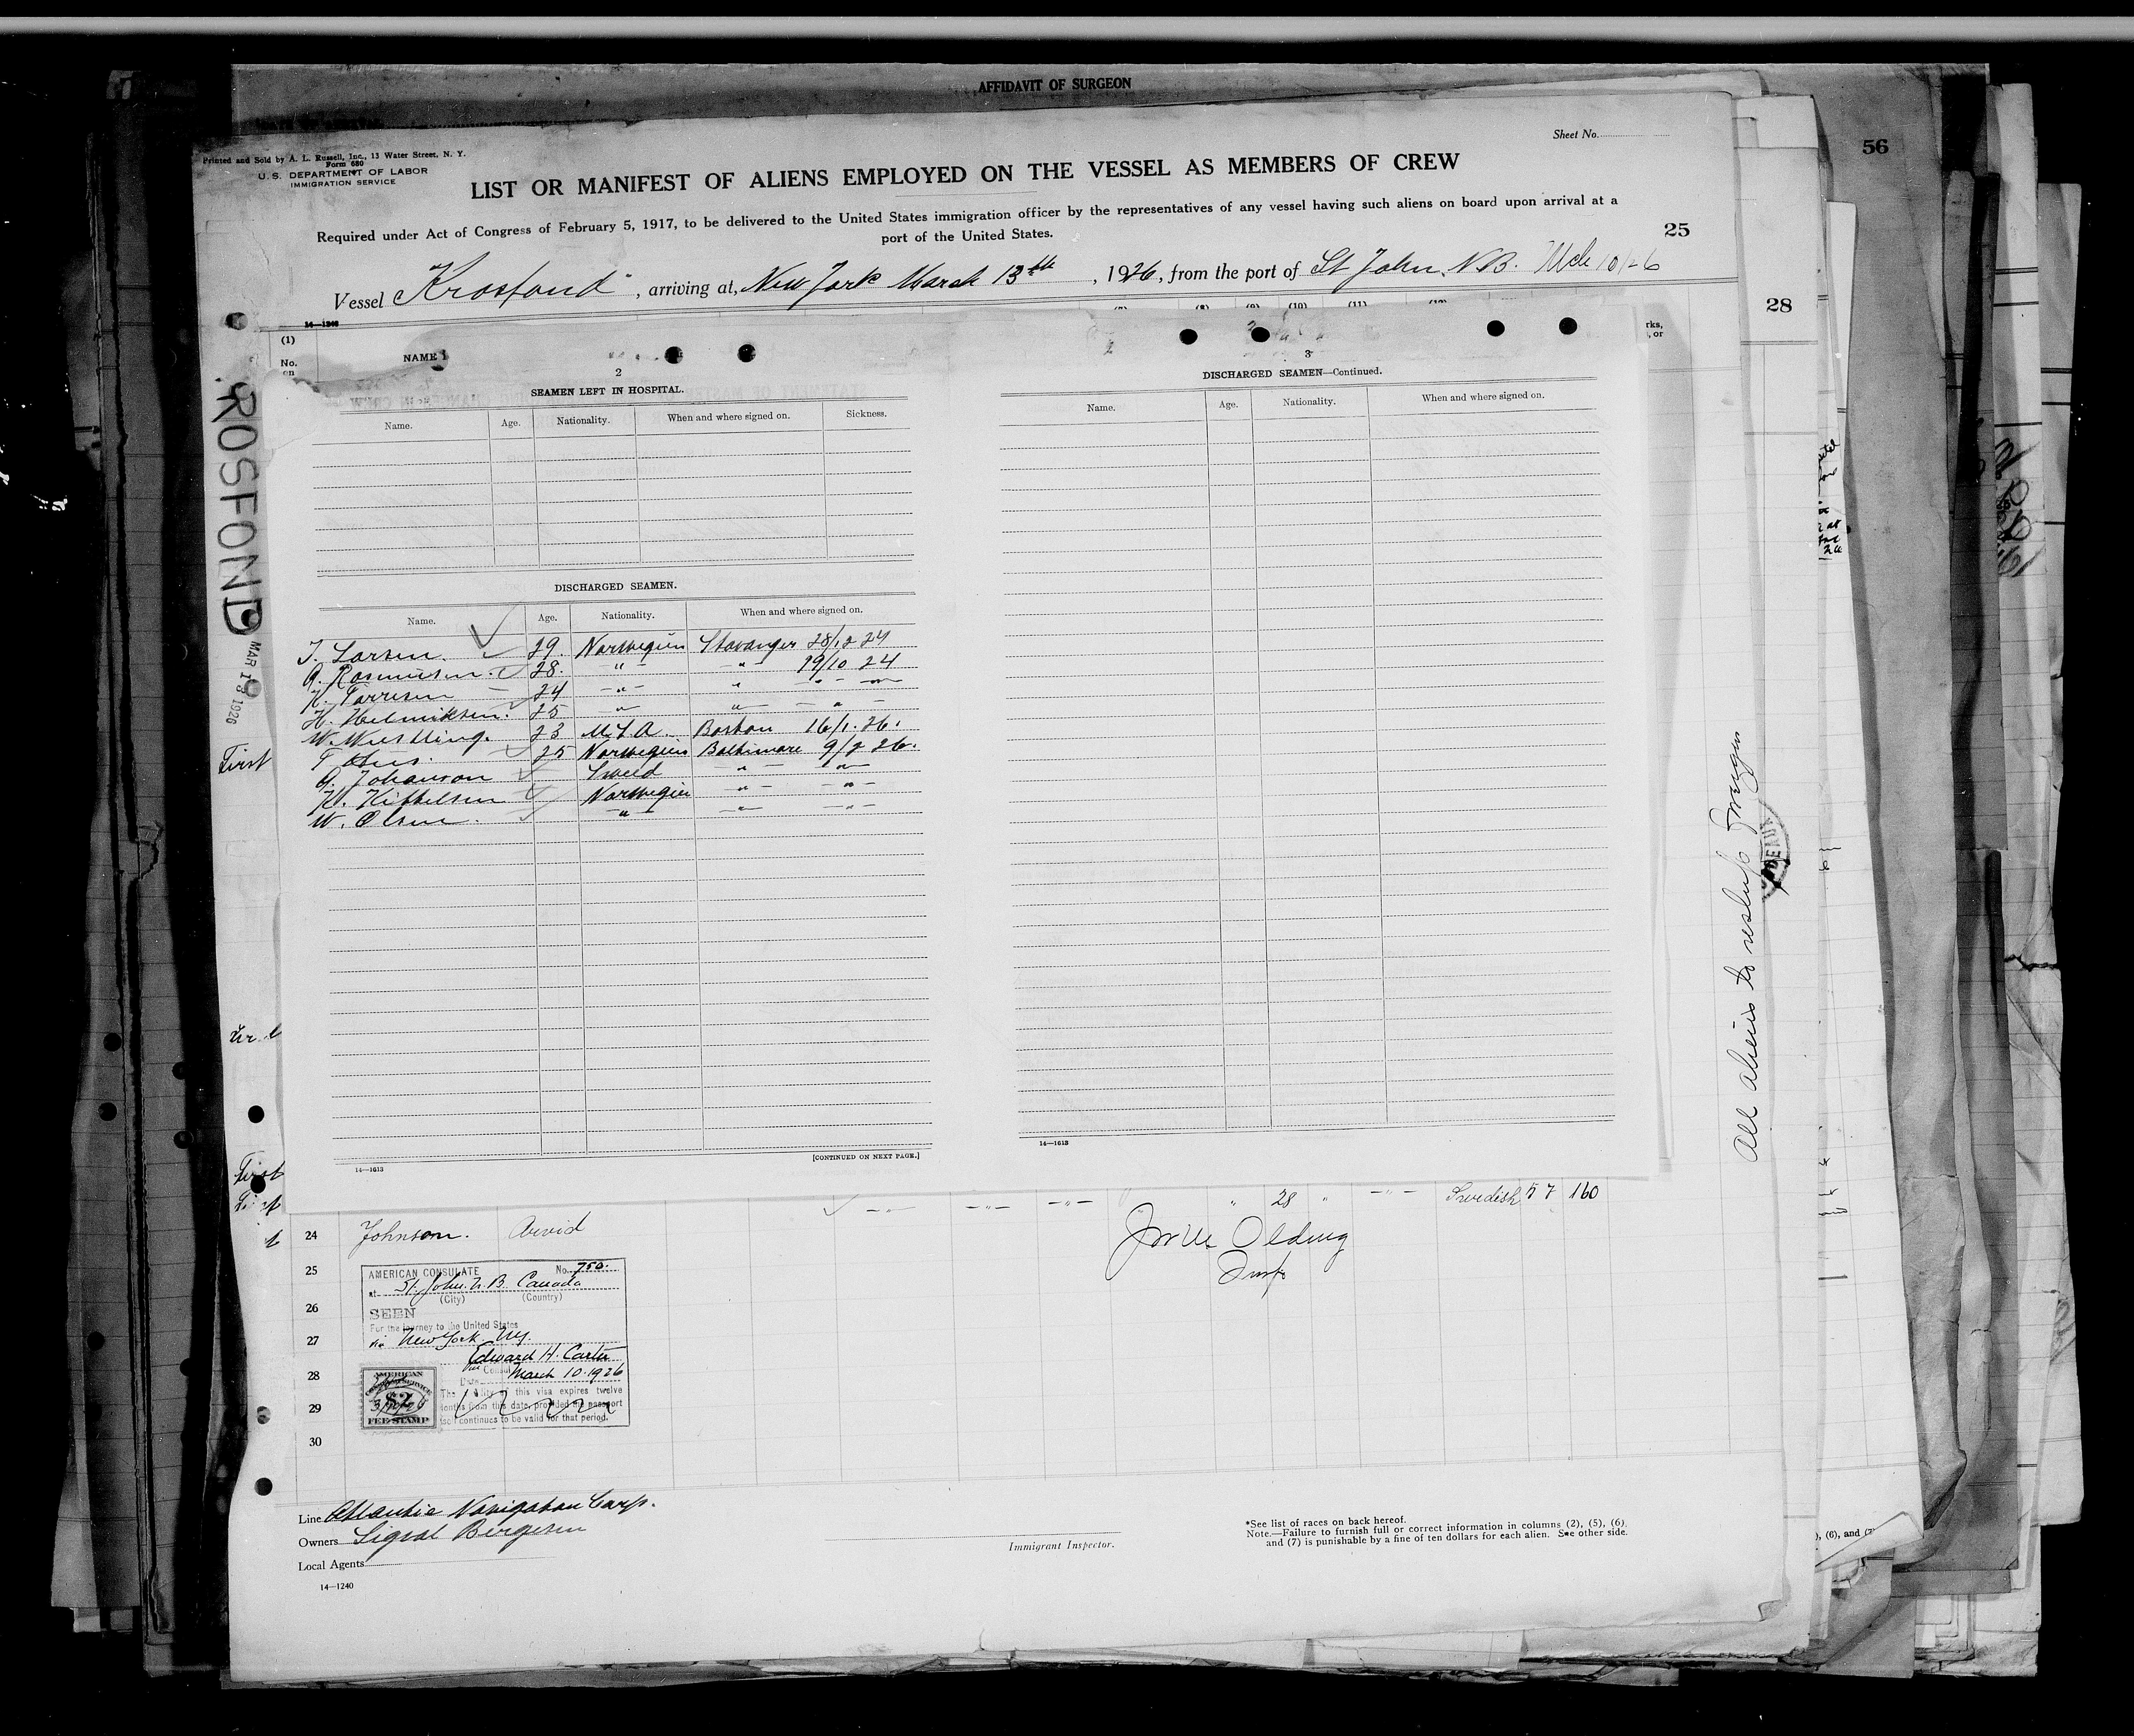 AFFIDAVIT OF SURGEON
56
Sheet No.
Printed and Sold by A. L. Russell, Inc., 13 Water Street, N. Y.
Form 680
U. S. DEPARTMENT OF LABOR
IMMIGRATION SERVICE
LIST OR MANIFEST OF ALIENS EMPLOYED ON THE VESSEL AS MEMBERS OF CREW
Required under Act of Congress of February 5, 1917, to be delivered to the United States immigration officer by the representatives of any vessel having such aliens on board upon arrival at a
port of the United States.
25
Vessel Krosfond, arriving at, New York March 13th, 1926, from the port of St John N.B. Mch 10/26
28
14—1240
(1)
No.
on
NAME
rks,
, or
2
SEAMEN LEFT IN HOSPITAL.
Name. Age. Nationality. When and where signed on. Sickness.
DISCHARGED SEAMEN.
Name. Age. Nationality. When and where signed on.
T. Larsen. 29. Norwegien Stavanger 28/12 24
A. Rasmussen. 28. -"- -"- 19/10 24
K. Torresen 24 -"- " " - -"-
H. Helmiksen. 25 -"- -"- - " -
W. 23 U.S.A. Boston 16/1. 26.
T. 25 Norwegien Baltimore 9/2 26.
A. Johanson Sweed -"- -"-
K. Kittelsen Norwegien -"- -"-
W. Olsen. -"- -"- -"-
[CONTINUED ON NEXT PAGE.]
14—1613
3
DISCHARGED SEAMEN—Continued.
Name. Age. Nationality. When and where signed on.
14—1613
ROSFOND
MAR 13 1926
First
First
All aliens to reship foreign
" 28 " -"- Swedish 5 7 160
24 Johnson. Arvid
25
26
27
28
29
30
AMERICAN CONSULATE No. 750.
at St. John. N. B. Canada
(City) (Country)
SEEN
For the journey to the United States
via New York N.Y.
Edward H. Carter
Vice Consul
Date March 10. 1926
The validity of this visa expires twelve
months from this date, provided the passport
itself continues to be valid for that period.
AMERICAN
CONSULAR SERVICE
$2
3/10/26
FEE STAMP
Olding
Insp
Line Atlantic Navigation Corp.
Owners Sigval Bergesen
Local Agents
14—1240
Immigrant Inspector.
*See list of races on back hereof.
Note.—Failure to furnish full or correct information in columns (2), (5), (6),
and (7) is punishable by a fine of ten dollars for each alien. See other side.
), (6), and (7)